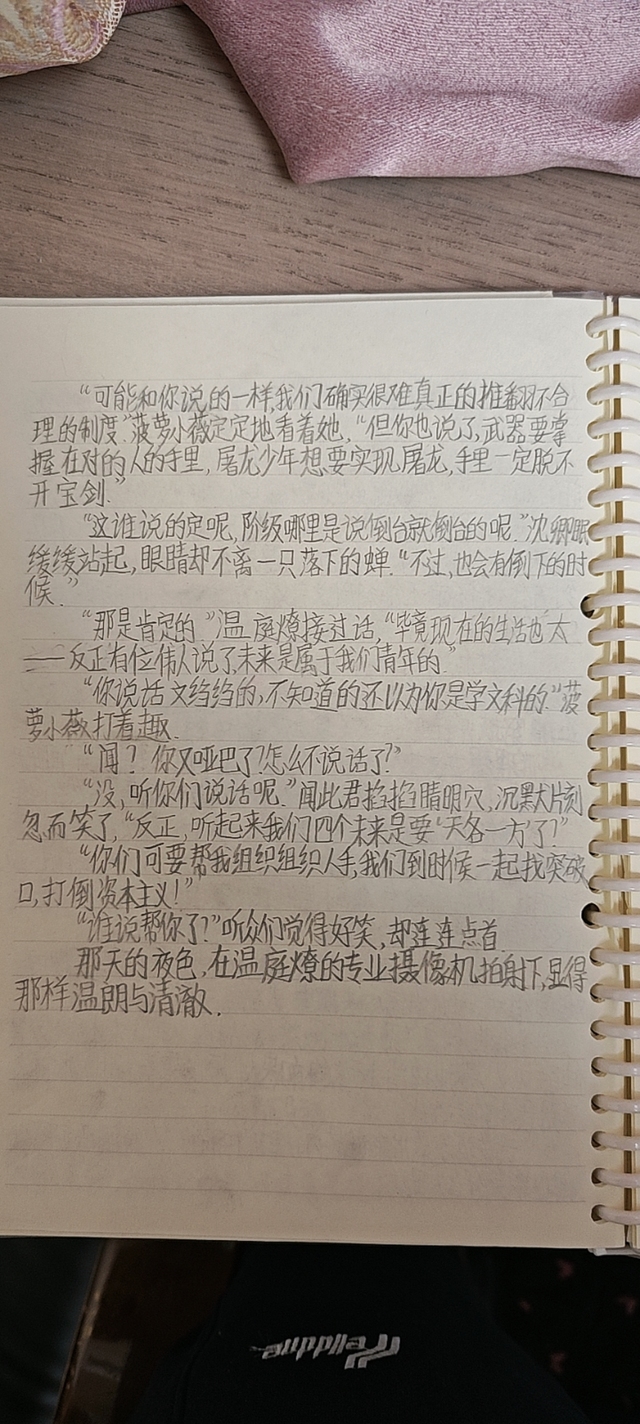 “可能和你说的一样,我们确实很难真正的推翻不合
理的制度”菠萝小薇定定地看着她,“但你也说了,武器要掌
握在对的人的手里,屠龙少年想要实现屠龙,手里一定脱不
开宝剑.”
“这谁说的定呢,阶级哪里是说倒台就倒台的呢.”沈卿眠
缓缓站起,眼睛却不离一只落下的蝉.“不过,也会有倒下的时
候.”
“那是肯定的.”温庭燎接过话,“毕竟现在的生活也太
——反正有位伟人说了,未来是属于我们青年的.”
“你说话文绉绉的,不知道的还以为你是学文科的.”菠
萝小薇打着趣.
“闻?你又哑巴了?怎么不说话了?”
“没,听你们说话呢.”闻此君掐掐睛明穴,沉默片刻
忽而笑了,“反正,听起来我们四个未来是要‘天各一方’了?”
“你们可要帮我组织组织人手,我们到时候一起找突破
口,打倒资本主义!”
“谁说帮你了?”听众们觉得好笑,却连连点首.
那天的夜色,在温庭燎的专业摄像机拍射下,显得
那样温朗与清澈.